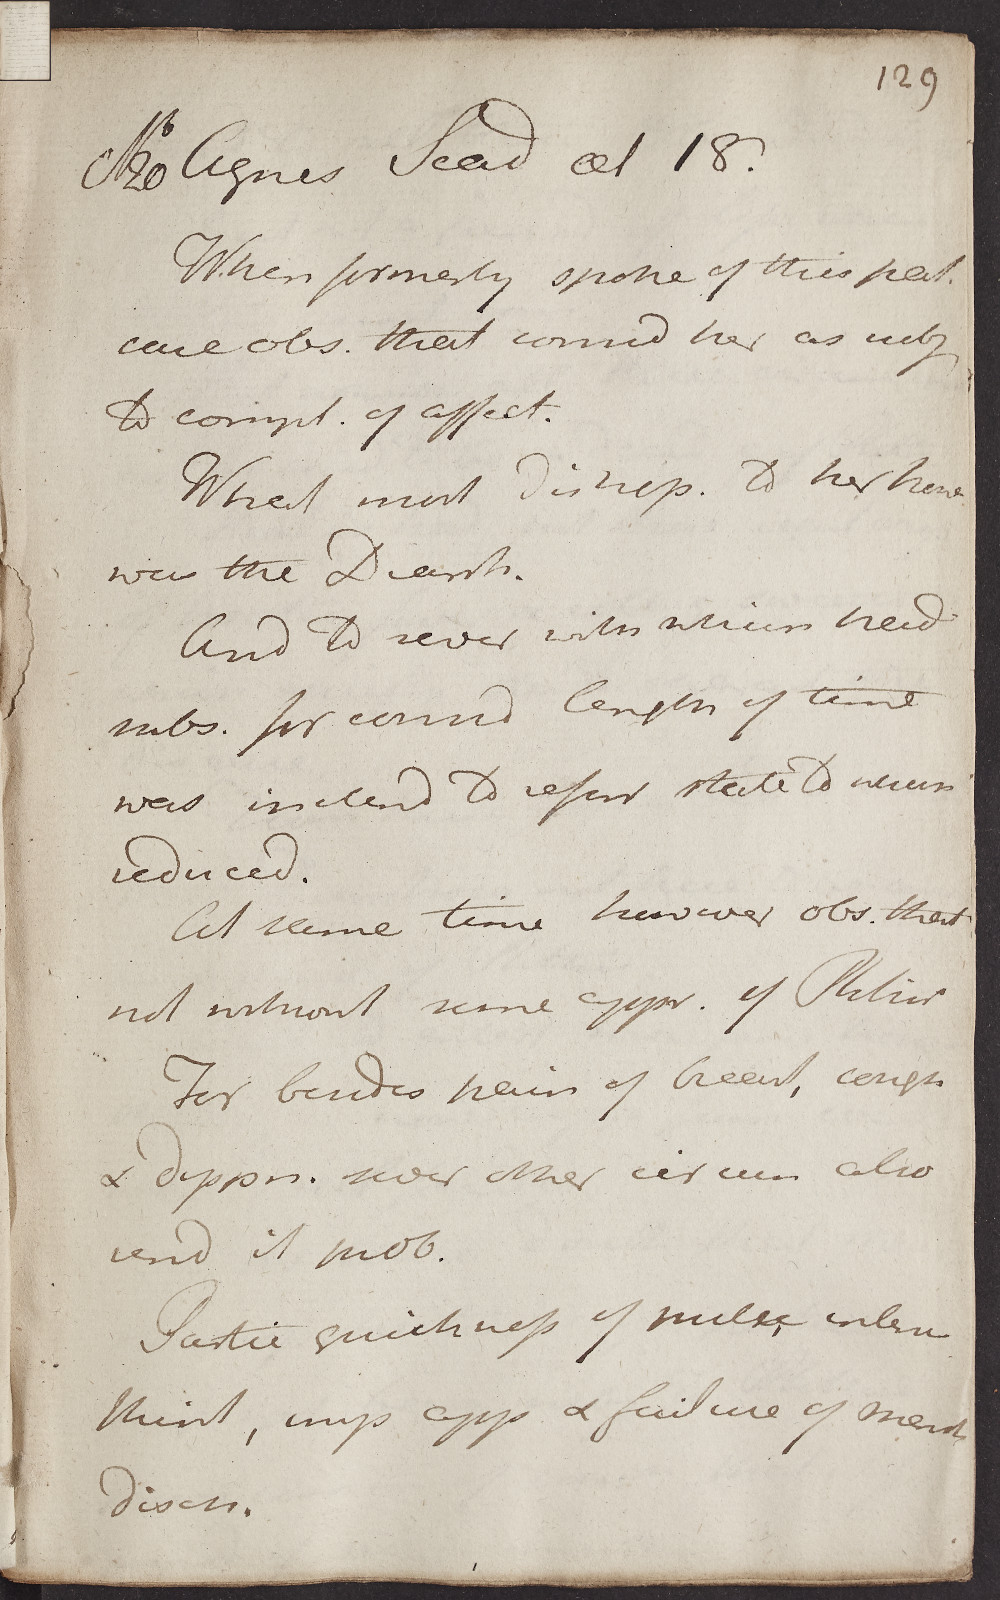 129
No 20 Agnes Sead æt 18.
When formerly spoke of this pat.
case obs. that consid her as subj
to compl. of affect.
What most distresp. to her here
was the Diarrh.
And to never with whom head
subs. for consid length of time
was inclend to refer state to whicn
reduced.
At same time however obs. that
not without some appr. of Phthis
For besides pain of breast, cough
& dyspn. sever other circum also
rend it prob.
Partic quickness of pulse, inten
thirst, imp app & failure of menst
disch.